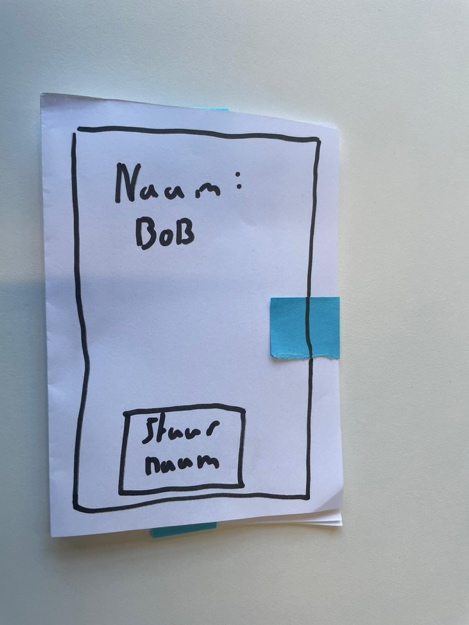 Naam:
BoB
Stuur
naam